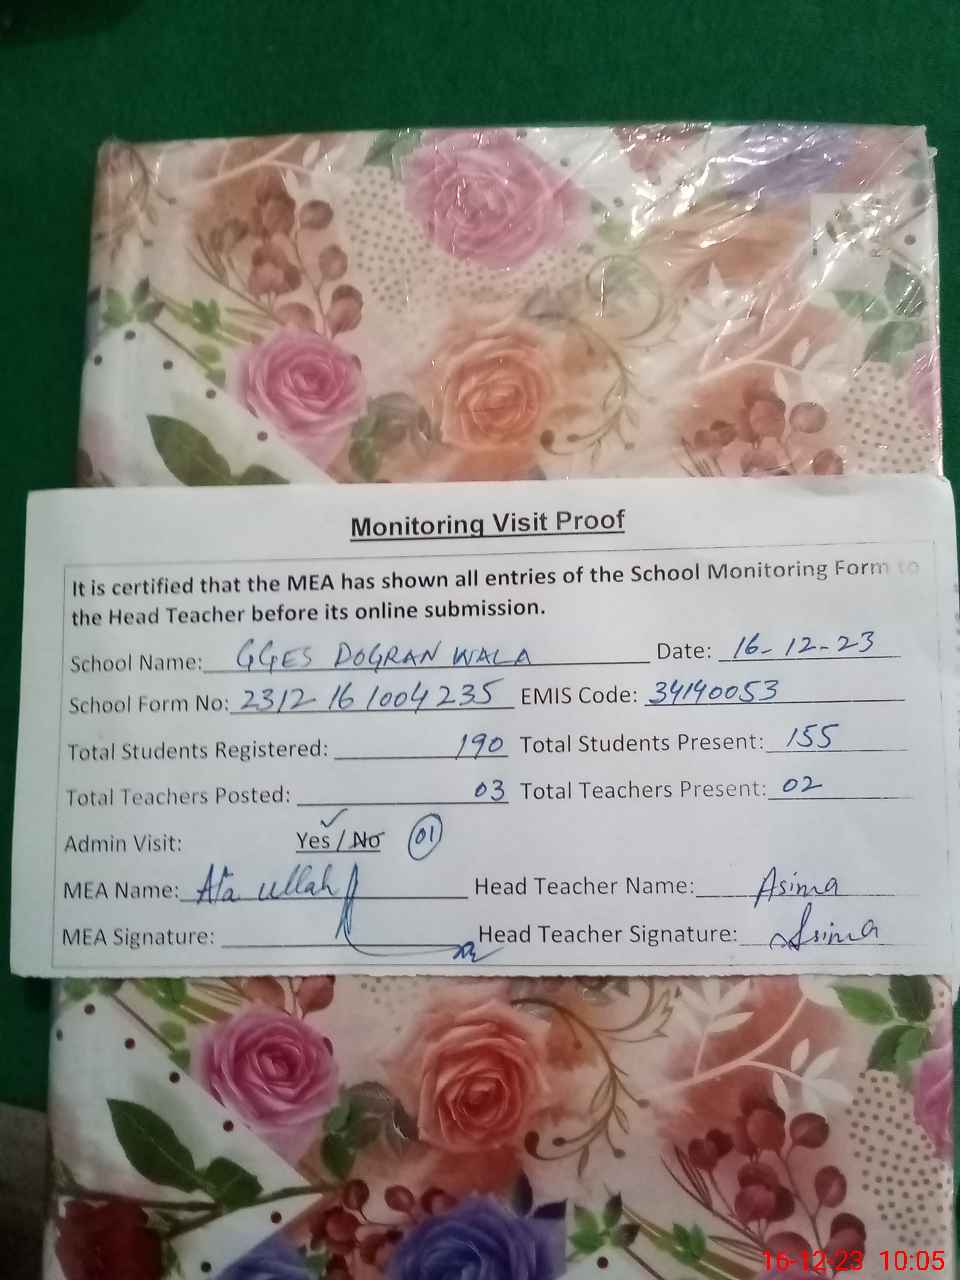 Monitoring Visit Proof
It is certified that the MEA has shown all entries of the School Monitoring Form to
the Head Teacher before its online submission.
School Name: GGES DOGRAN WALA Date: 16-12-23
School Form No: 2312 16 1004 235 EMIS Code: 34140053
Total Students Registered: 190 Total Students Present: 155
Total Teachers Posted: 03 Total Teachers Present: 02
Admin Visit: Yes / No 01
MEA Name: Ata ullah Head Teacher Name: Asima
MEA Signature: Head Teacher Signature: Asima
16-12-23 10:05